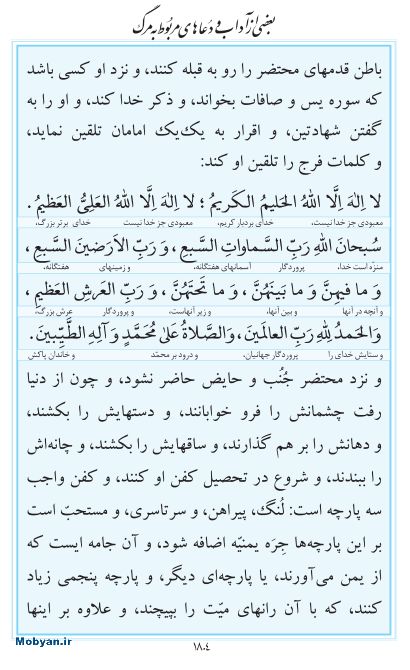 بعضی از آداب و دعاهای مربوط به مرگ
باطن قدمهای محتضر را رو به قبله کنند، و نزد او کسی باشد
که سوره یس و صافات بخواند، و ذکر خدا کند، و او را به
گفتن شهادتین، و اقرار به یک‌یک امامان تلقین نماید،
و کلمات فرج را تلقین او کند:
لا اِلهَ اِلَّا اللهُ الحَلیمُ الکَریمُ؛ لا اِلهَ اِلَّا اللهُ العَلِیُّ العَظیمُ.
معبودی جز خدا نیست، خدای بردبار کریم، معبودی جز خدا نیست خدای برتر بزرگ،
سُبحانَ اللهِ رَبِّ السَّماواتِ السَّبعِ، وَ رَبِّ الاَرَضینَ السَّبعِ،
منزّه است خدا، پروردگار آسمانهای هفتگانه، و زمینهای هفتگانه،
وَ ما فیهِنَّ وَ ما بَینَهُنَّ، وَ ما تَحتَهُنَّ، وَ رَبِّ العَرشِ العَظیمِ،
و آنچه در آنها و بین آنها، و زیر آنهاست، و پروردگار عرش بزرگ،
وَالحَمدُ لِلّهِ رَبِّ العالَمینَ، وَالصَّلاةُ عَلیٰ مُحَمَّدٍ وَ آلِهِ الطَّیِّبینَ.
و ستایش خدای را پروردگار جهانیان، و درود بر محمّد و خاندان پاکش
و نزد محتضر جُنُب و حایض حاضر نشود، و چون از دنیا
رفت چشمانش را فرو خوابانند، و دستهایش را بکشند،
و دهانش را بر هم گذارند، و ساقهایش را بکشند، و چانه‌اش
را ببندند، و شروع در تحصیل کفن او کنند، و کفن واجب
سه پارچه است: لُنگ، پیراهن، و سرتاسری، و مستحبّ است
بر این پارچه‌ها حِبَره یمنیّه اضافه شود، و آن جامه ایست که
از یمن می‌آورند، یا پارچه‌ای دیگر، و پارچه پنجمی زیاد
کنند، که با آن رانهای میّت را بپیچند، و علاوه بر اینها
Mobyan.ir
۱۸۰۴